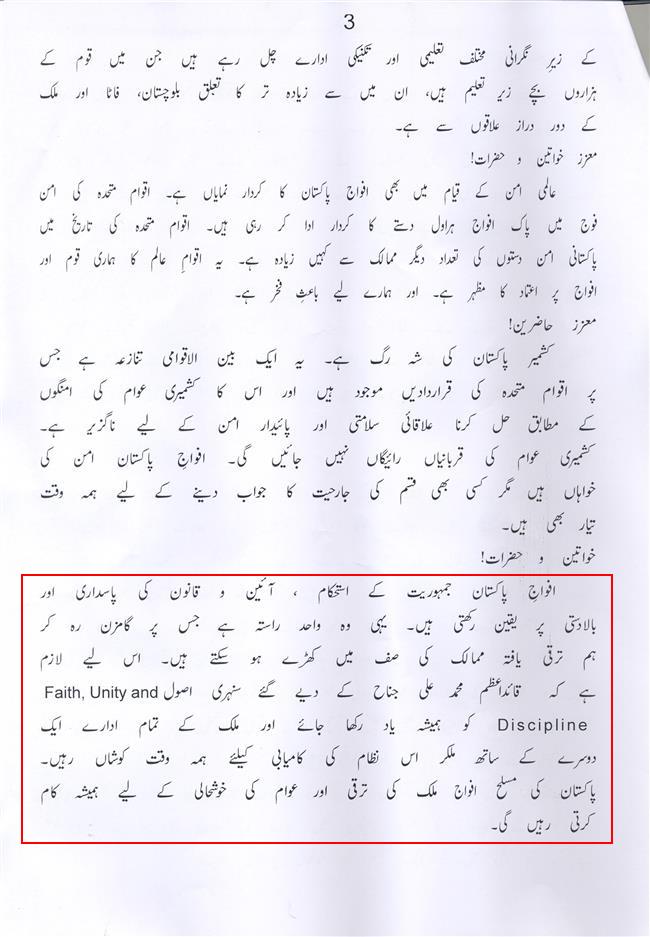 3
کے زیرِ نگرانی مختلف تعلیمی اور تکنیکی ادارے چل رہے ہیں جن میں قوم کے
ہزاروں بچے زیر تعلیم ہیں، ان میں سے زیادہ تر کا تعلق بلوچستان، فاٹا اور ملک
کے دور دراز علاقوں سے ہے۔
معزز خواتین و حضرات!
عالمی امن کے قیام میں بھی افواج پاکستان کا کردار نمایاں ہے۔ اقوام متحدہ کی امن
فوج میں پاک افواج ہراول دستے کا کردار ادا کر رہی ہیں۔ اقوام متحدہ کی تاریخ میں
پاکستانی امن دستوں کی تعداد دیگر ممالک سے کہیں زیادہ ہے۔ یہ اقوامِ عالم کا ہماری قوم اور
افواج پر اعتماد کا مظہر ہے۔ اور ہمارے لیے باعثِ فخر ہے۔
معزز حاضرین!
کشمیر پاکستان کی شہ رگ ہے۔ یہ ایک بین الاقوامی تنازعہ ہے جس
پر اقوام متحدہ کی قراردادیں موجود ہیں اور اس کا کشمیری عوام کی امنگوں
کے مطابق حل کرنا علاقائی سلامتی اور پائیدار امن کے لیے ناگزیر ہے۔
کشمیری عوام کی قربانیاں رائیگاں نہیں جائیں گی۔ افواجِ پاکستان امن کی
خواہاں ہیں مگر کسی بھی قسم کی جارحیت کا جواب دینے کے لیے ہمہ وقت
تیار بھی ہیں۔
خواتین و حضرات!
افواجِ پاکستان جمہوریت کے استحکام ، آئین و قانون کی پاسداری اور
بالادستی پر یقین رکھتی ہیں۔ یہی وہ واحد راستہ ہے جس پر گامزن رہ کر
ہم ترقی یافتہ ممالک کی صف میں کھڑے ہو سکتے ہیں۔ اس لیے لازم
ہے کہ قائداعظم محمد علی جناح کے دیے گئے سنہری اصول Faith, Unity and
Discipline کو ہمیشہ یاد رکھا جائے اور ملک کے تمام ادارے ایک
دوسرے کے ساتھ ملکر اس نظام کی کامیابی کیلئے ہمہ وقت کوشاں رہیں۔
پاکستان کی مسلح افواج ملک کی ترقی اور عوام کی خوشحالی کے لیے ہمیشہ کام
کرتی رہیں گی۔